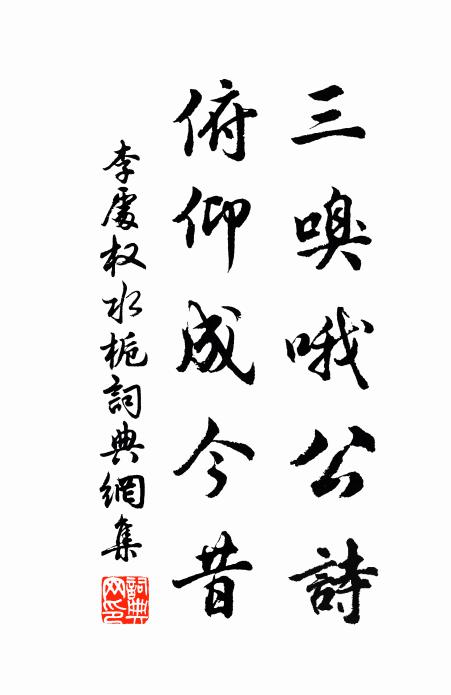 三嗅哦公詩
俯仰成今昔
李處权水栀詞典網集
詞典網印